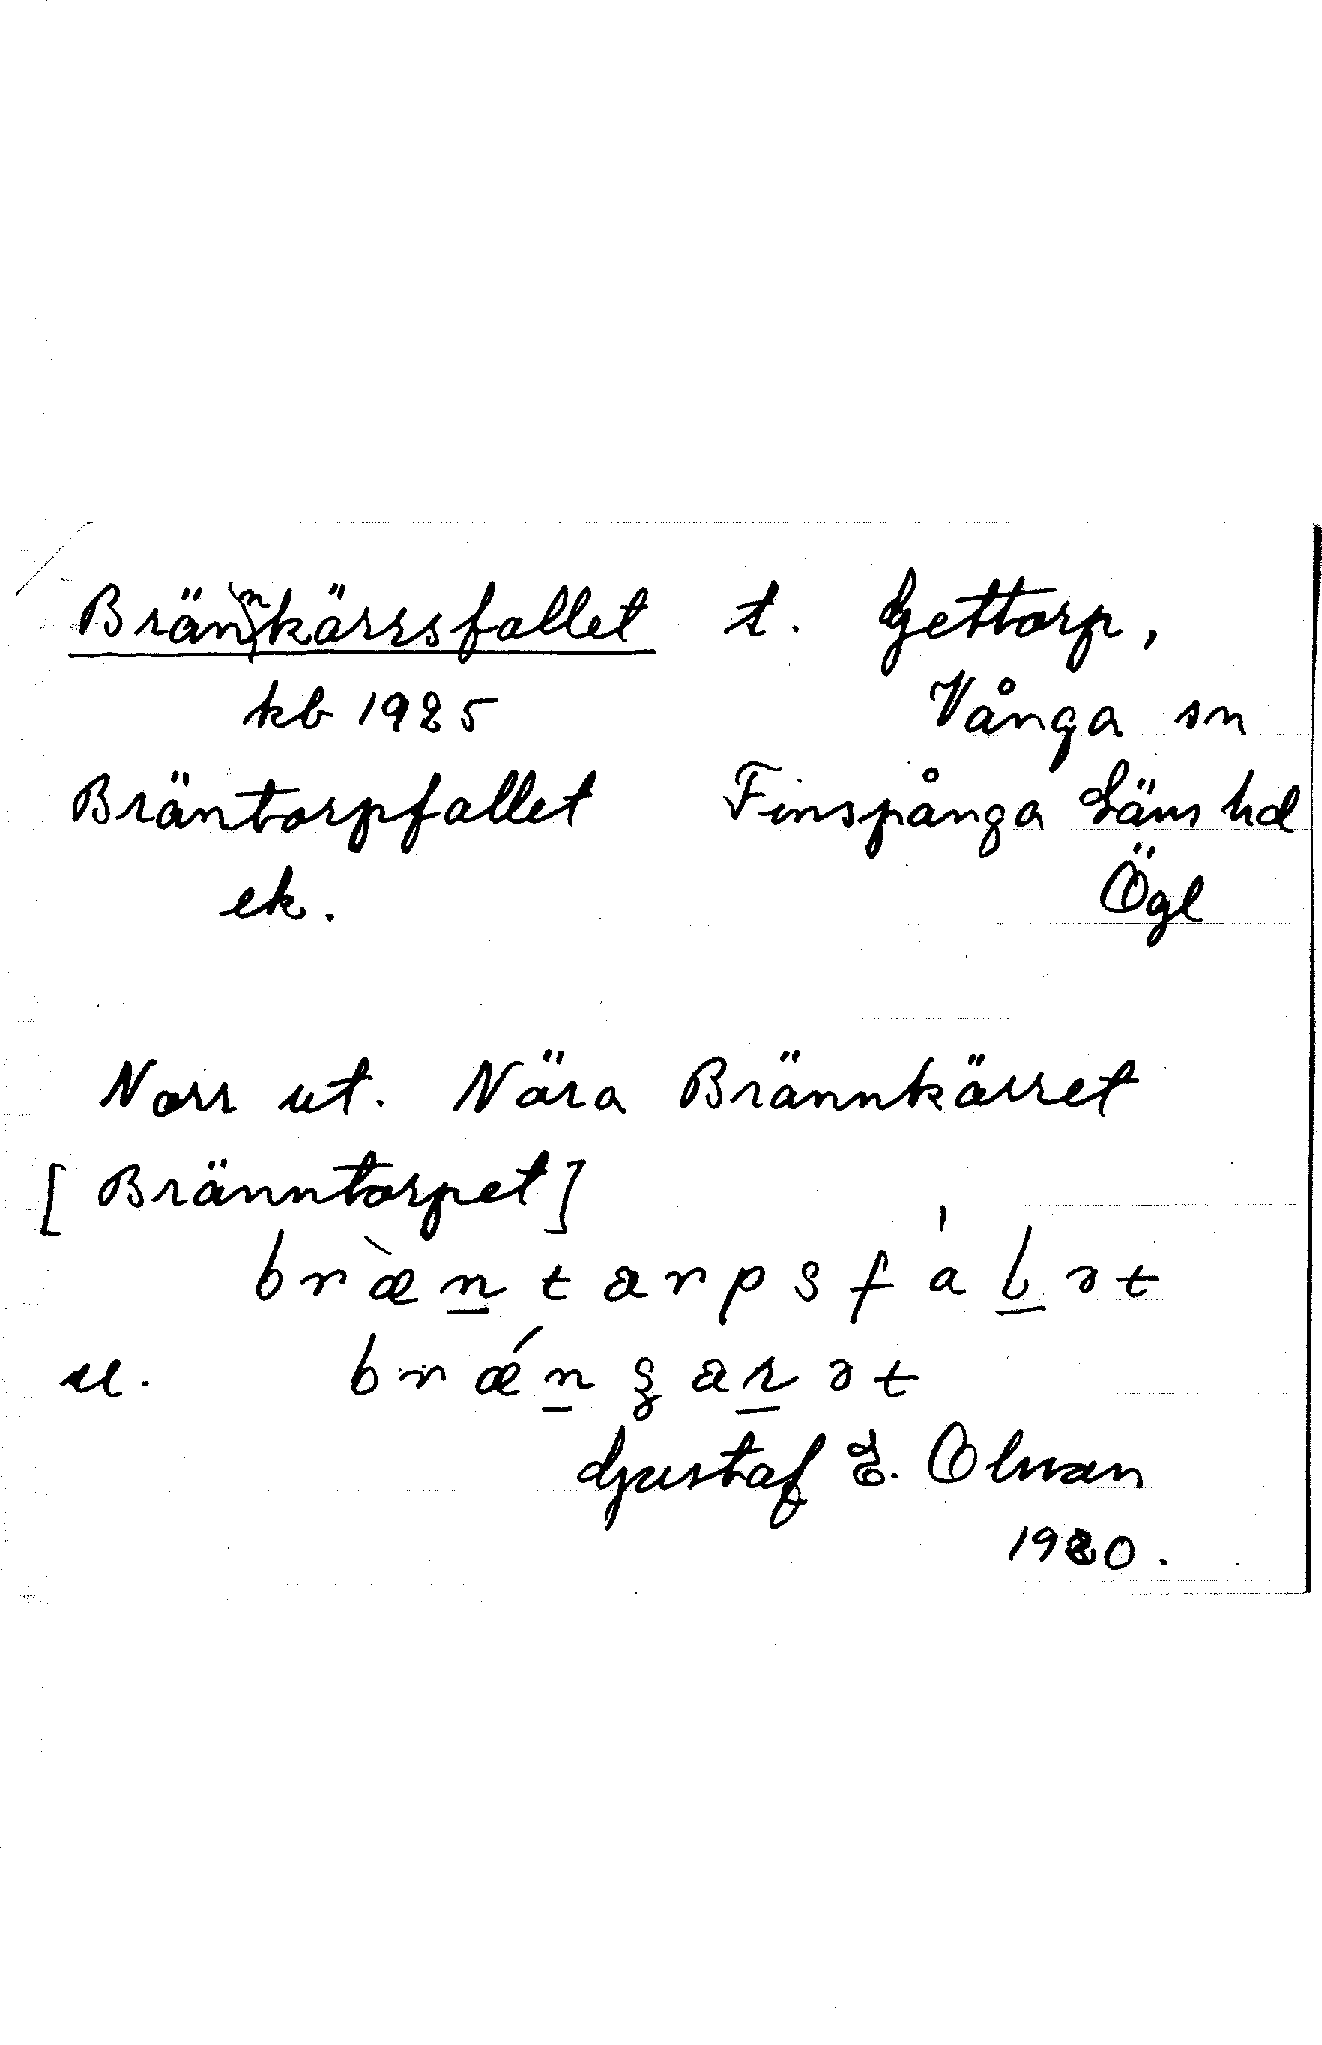 Brännkärrsfallet t. Gettorp,
kb 1925 Vånga sn
Bräntorpfallet Finspånga Läns hd
ek. Ögl
Norr ut. Nära Brännkärret
[Bränntorpet]
bræ̀n̲tarpsfál̲ət
u.
Gustaf E. Olman
1920.